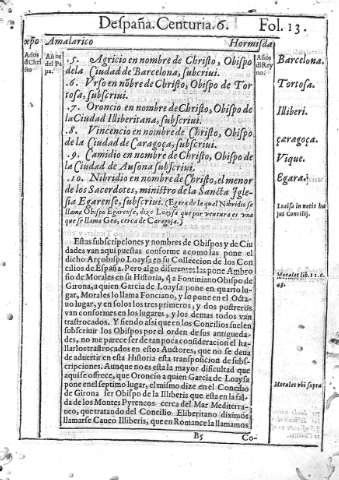 Despaña. Centuria. 6. Fol. 13.
xp̃o Amalarico Hormisda
Años de Christo
Años del Papa.
Años del Reyno.
.5. Agricio en nombre de Christo, Obispo
de la Ciudad de Barcelona, subcriui.
Barcelona.
.6. Vrso en nõbre de Christo, Obispo de Tor
tosa, subscriui.
Tortosa.
.7. Oroncio en nombre de Christo, Obispo de
la Ciudad Illiberitana, subscriui.
Illiberi.
.8. Vincencio en nombre de Christo, Obispo
de la Ciudad de Caragoça, subscriui.
çaragoça.
.9. Camidio en nombre de Christo, Obispo de
la Ciudad de Ausona subscriui.
Vique.
.10. Nibridio en nombre de Christo, el menor
de los Sacerdotes, ministro de la Sancta Igle
sia Egarense, subscriui. (Egara de la qual Nibridio se
llama Obispo Egarense, dize Loaysa que por ventura es vna
que se llama Geo, cerca de Caragoça.)
Egara.
Loaisa in notis hu
jus Concilij.
Estas subscripciones y nombres de Obispos y de Ciu
dades van aqui puestas conforme acomo las pone el
dicho Arçobispo Loaysa en su Colleccion de los Con
cilios de España. Pero algo diferentes las pone Ambro
sio de Morales en su Historia, q̃ a Fontiniano Obispo de
Girona, a quien Garcia de Loaysa pone en quarto lu
gar, Morales lo llama Fonciano, y lo pone en el Octa
uo lugar, y en solos los tres primeros, y dos postreros
van conformes en los lugares, y los demas todos van
trastrocados. Y siendo alsi que en los Concilios suelen
subscriuir los Obispos por el orden de sus antigueda-
des, no me parece ser de tan poca consideracion el ha-
llarlos trastrocados en estos Auctores, que no se deua
de aduirtir en esta Historia esta transposicion de subs-
cripciones. Aunque no es esta la mayor dificultad que
aqui se offrece, que Oroncio a quien Garcia de Loaysa
pone en el septimo lugar, el mismo dize en el Concilio
de Girona ser Obispo de la Illiberia que esta en la fal-
da de los Montes Pyreneos cerca del Mar Mediterra-
neo, que tratando del Concilio Eliberitano diximos
llamarse Cauco Illiberia, que en Romance la llamamos
Morales lib. 11. c.
Morales vbi supra
B5 Co-